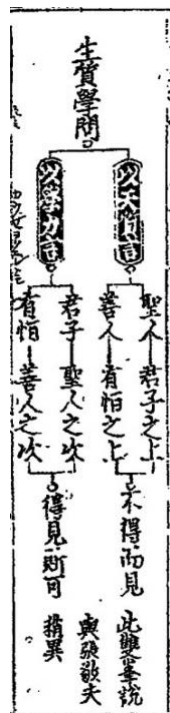 生質學問
以天資言
聖人 君子之上
善人 有恒之上
不得而見
以學力言
君子 聖人之次
有恒 善人之次
得見斯可
此雙峯說
與張敬夫
稍異